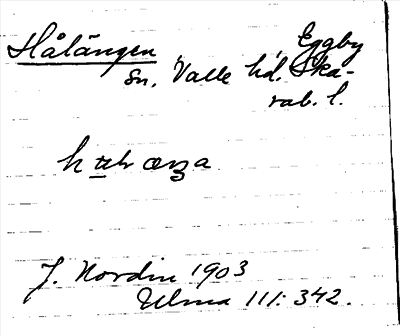 Hålängen Eggby
sn. Valle hd. Ska-
rab. l.
J. Nordin 1903
Ulma 111:342.